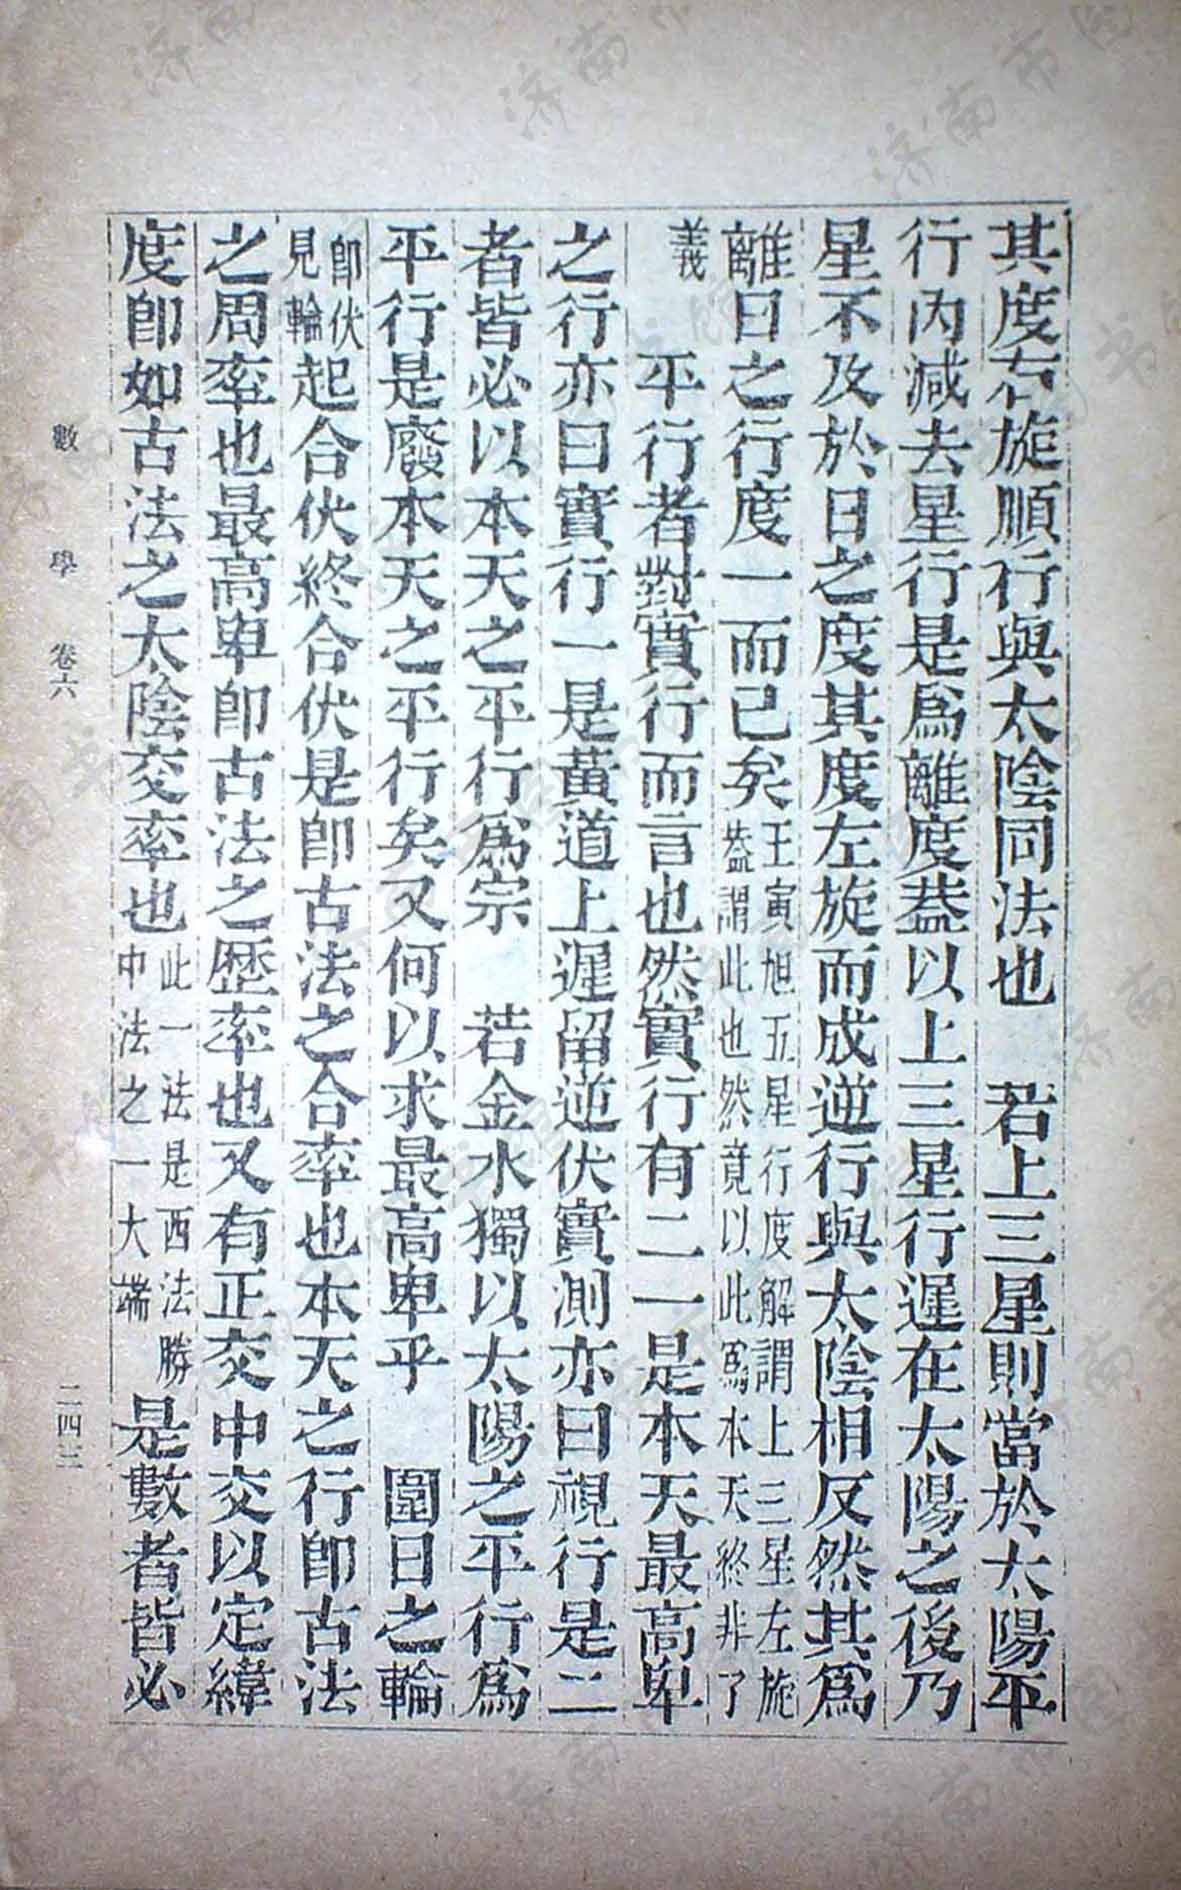 其度右旋順行與太陰同法也　若上三星則當於太陽平
行內減去星行是爲離度葢以上三星行遲在太陽之後乃
星不及於日之度其度左旋而成逆行與太陰相反然其爲
離日之行度一而已矣王寅旭五星行度解謂上三星左旋
葢謂此也然竟以此爲本天終非了
義
平行者對實行而言也然實行有二一是本天最高卑
之行亦曰實行一是黃道上遲留逆伏實測亦曰視行是二
者皆必以本天之平行爲宗　若金水獨以太陽之平行爲
平行是廢本天之平行矣又何以求最高卑乎　圍日之輪
卽伏
見輪
起合伏終合伏是卽古法之合率也本天之行卽古法
之周率也最高卑卽古法之歷率也又有正交中交以定緯
度卽如古法之太陰交率也此一法是西法勝
中法之一大端
是數者皆必
數學　卷六　二四三
濟南市圖書館